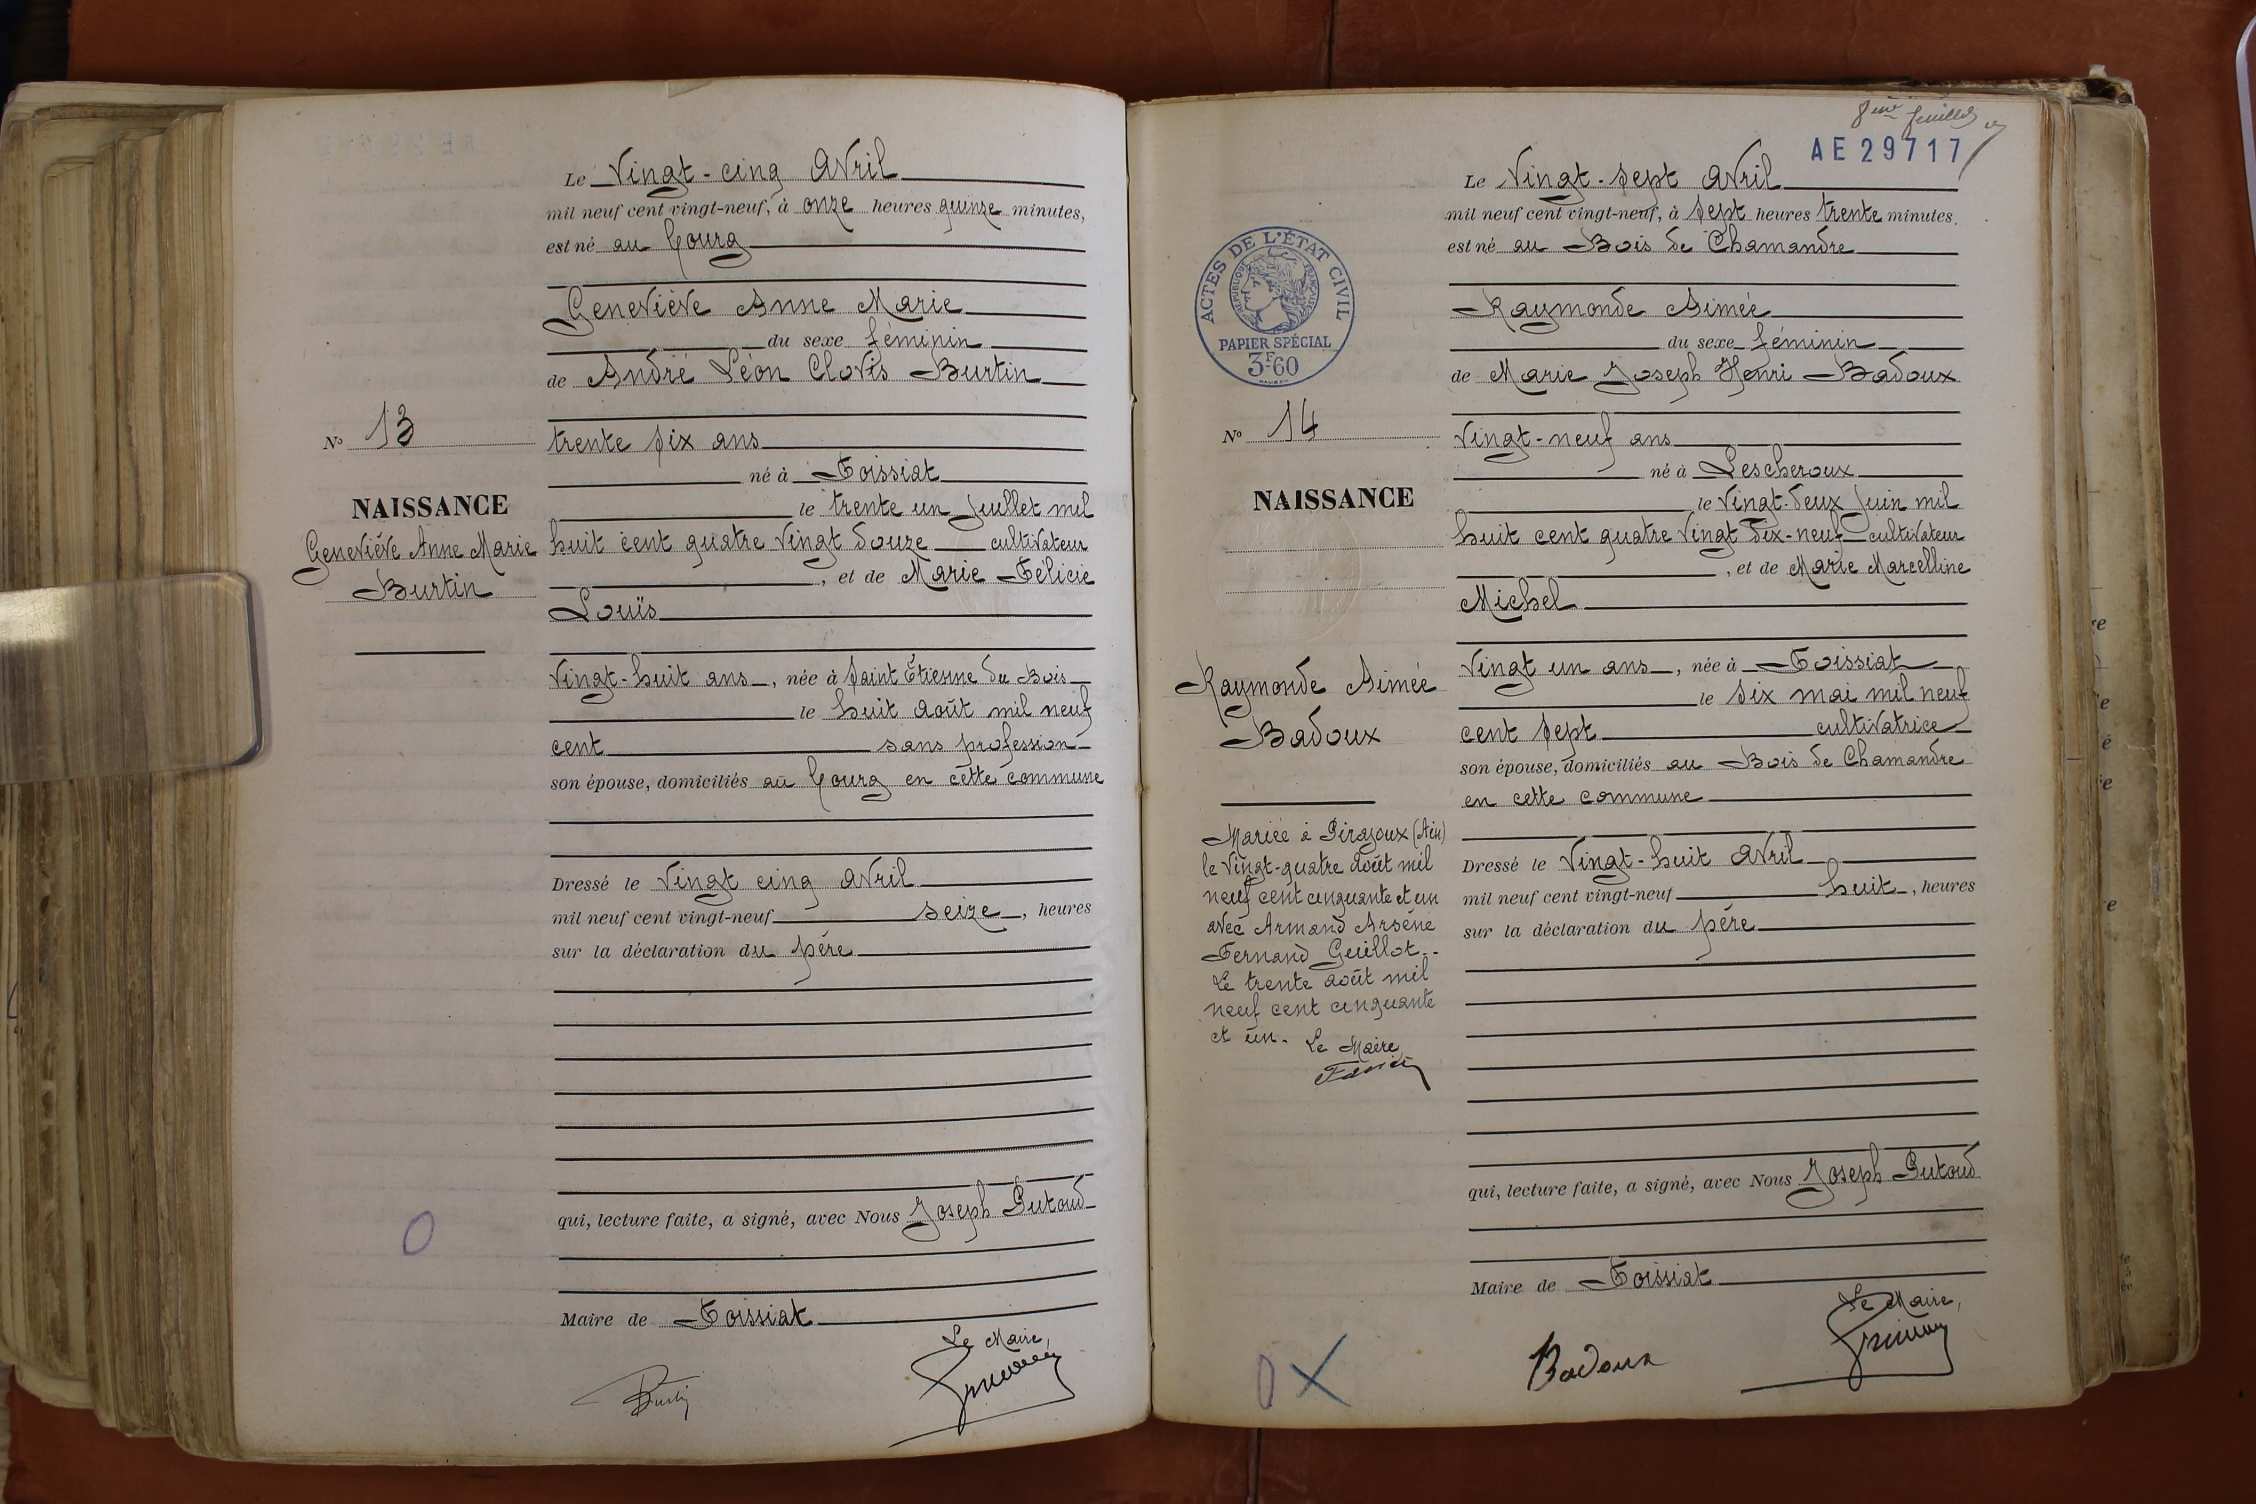 Le Vingt-cinq Avril
mil neuf cent vingt-neuf, à onze heures quinze minutes,
est né au Courg
Geneviève Anne Marie
du sexe féminin
de André Léon Clovis Burtin
trente six ans
né à Foissiat
le trente un Juillet mil
huit cent quatre vingt douze cultivateur
, et de Marie Félicie
Louis
Vingt-huit ans, née à Saint Étienne du Bois
le huit août mil neuf
cent sans profession
son épouse, domiciliés au Courg en cette commune
Dressé le Vingt cinq Avril
mil neuf cent vingt-neuf seize, heures
sur la déclaration du père
qui, lecture faite, a signé, avec Nous Joseph Putoud
Maire de Foissiat
Le Maire,
Burtin
No 13
NAISSANCE
Geneviève Anne Marie
Burtin
8ème feuillet
AE29717
Le Vingt-sept Avril
mil neuf cent vingt-neuf, à sept heures trente minutes.
est né au Bois de Chamandre
Raymonde Aimée
du sexe féminin
de Marie Joseph Henri Badoux
Vingt-neuf ans
né à Lescheroux
le Vingt-deux Juin mil
huit cent quatre vingt dix-neuf cultivateur
, et de Marie Marcelline
Michel
Vingt un ans, née à Foissiat
le six mai mil neuf
cent sept cultivatrice
son épouse, domiciliés au Bois de Chamandre
en cette commune
Dressé le Vingt-huit Avril
mil neuf cent vingt-neuf huit, heures
sur la déclaration du père
qui, lecture faite, a signé, avec Nous Joseph Putoud
Maire de Foissiat
Le Maire,
Badoux
ACTES DE L'ÉTAT CIVIL
RÉPUBLIQUE FRANÇAISE
PAPIER SPÉCIAL
3F60
No 14
NAISSANCE
Raymonde Aimée
Badoux
Mariée à Pirajoux (Ain)
le vingt-quatre août mil
neuf cent cinquante et un
avec Armand Arsène
Fernand Guillot.
Le trente août mil
neuf cent cinquante
et un. Le Maire